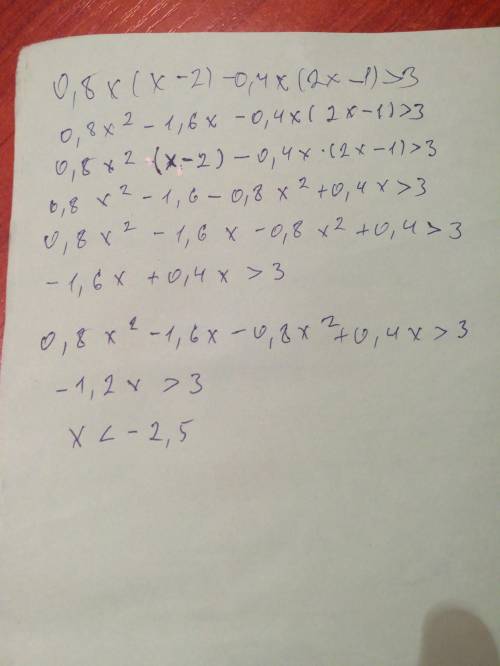 0,8x(x-2)-0,4x(2x-1)>3
0,8x²-1,6x-0,4x(2x-1)>3
0,8x²·(x-2)-0,4x·(2x-1)>3
0,8x²-1,6-0,8x²+0,4x>3
0,8x²-1,6x-0,8x²+0,4>3
-1,6x+0,4x>3
0,8x²-1,6x-0,8x²+0,4x>3
-1,2x>3
x<-2,5